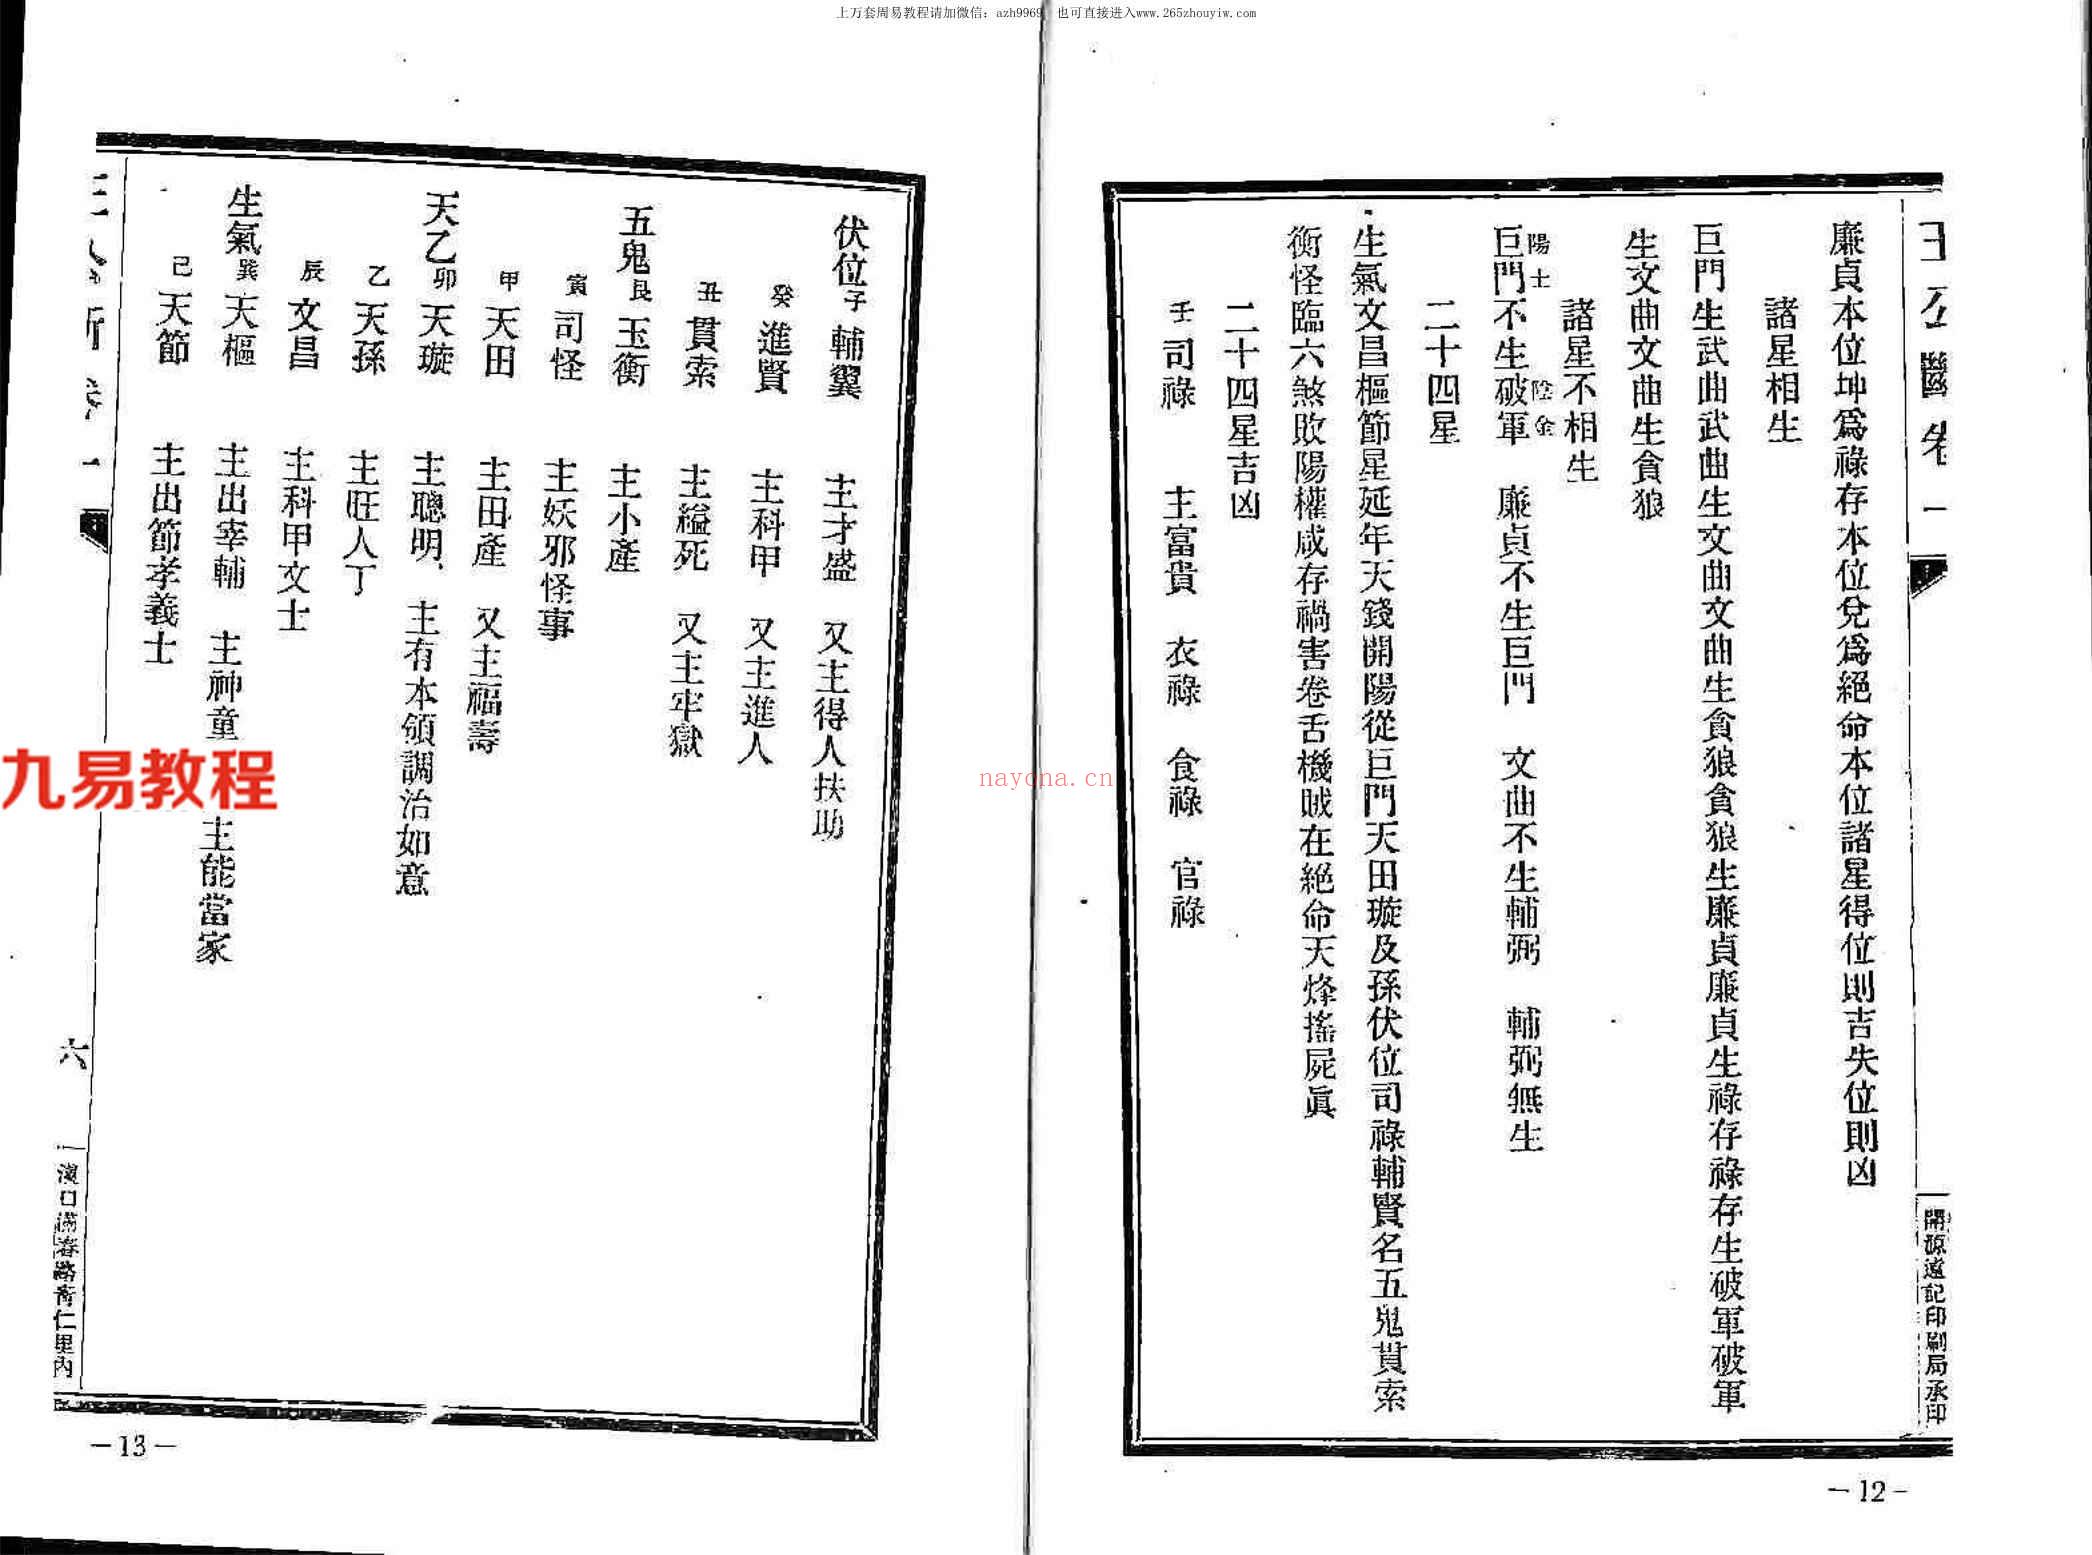 上万套周易教程请加微信：azh9969 也可直接进入www.265zhouyiw.com
王公斷卷一
開源遠記印刷局承印
廉貞本位坤爲祿存本位兌爲絕命本位諸星得位則吉失位則凶
諸星相生
巨門生武曲武曲生文曲文曲生貪狼貪狼生廉貞廉貞生祿存祿存生破軍破軍
生文曲文曲生貪狼
諸星不相生
陽土 陰金
巨門不生破軍 廉貞不生巨門 文曲不生輔弼 輔弼無生
二十四星
生氣文昌樞節星延年天錢開陽從巨門天田璇及孫伏位司祿輔賢名五鬼貫索
衡怪臨六煞敗陽權咸存禍害卷舌機賊在絕命天烽搖屍眞
二十四星吉凶
壬司祿 主富貴 衣祿 食祿 官祿
－12－
伏位子輔翼 主才盛 又主得人扶助
癸進賢 主科甲 又主進人
丑貫索 主縊死 又主牢獄
五鬼艮玉衡 主小產
寅司怪 主妖邪怪事
甲天田 主田產 又主福壽
天乙卯天璇 主聰明、主有本領調治如意
乙天孫 主旺人丁
辰文昌 主科甲文士
生氣巽天樞 主出宰輔 主神童 主能當家
巳天節 主出節孝義士
六
－13－
九易教程
nayona.cn